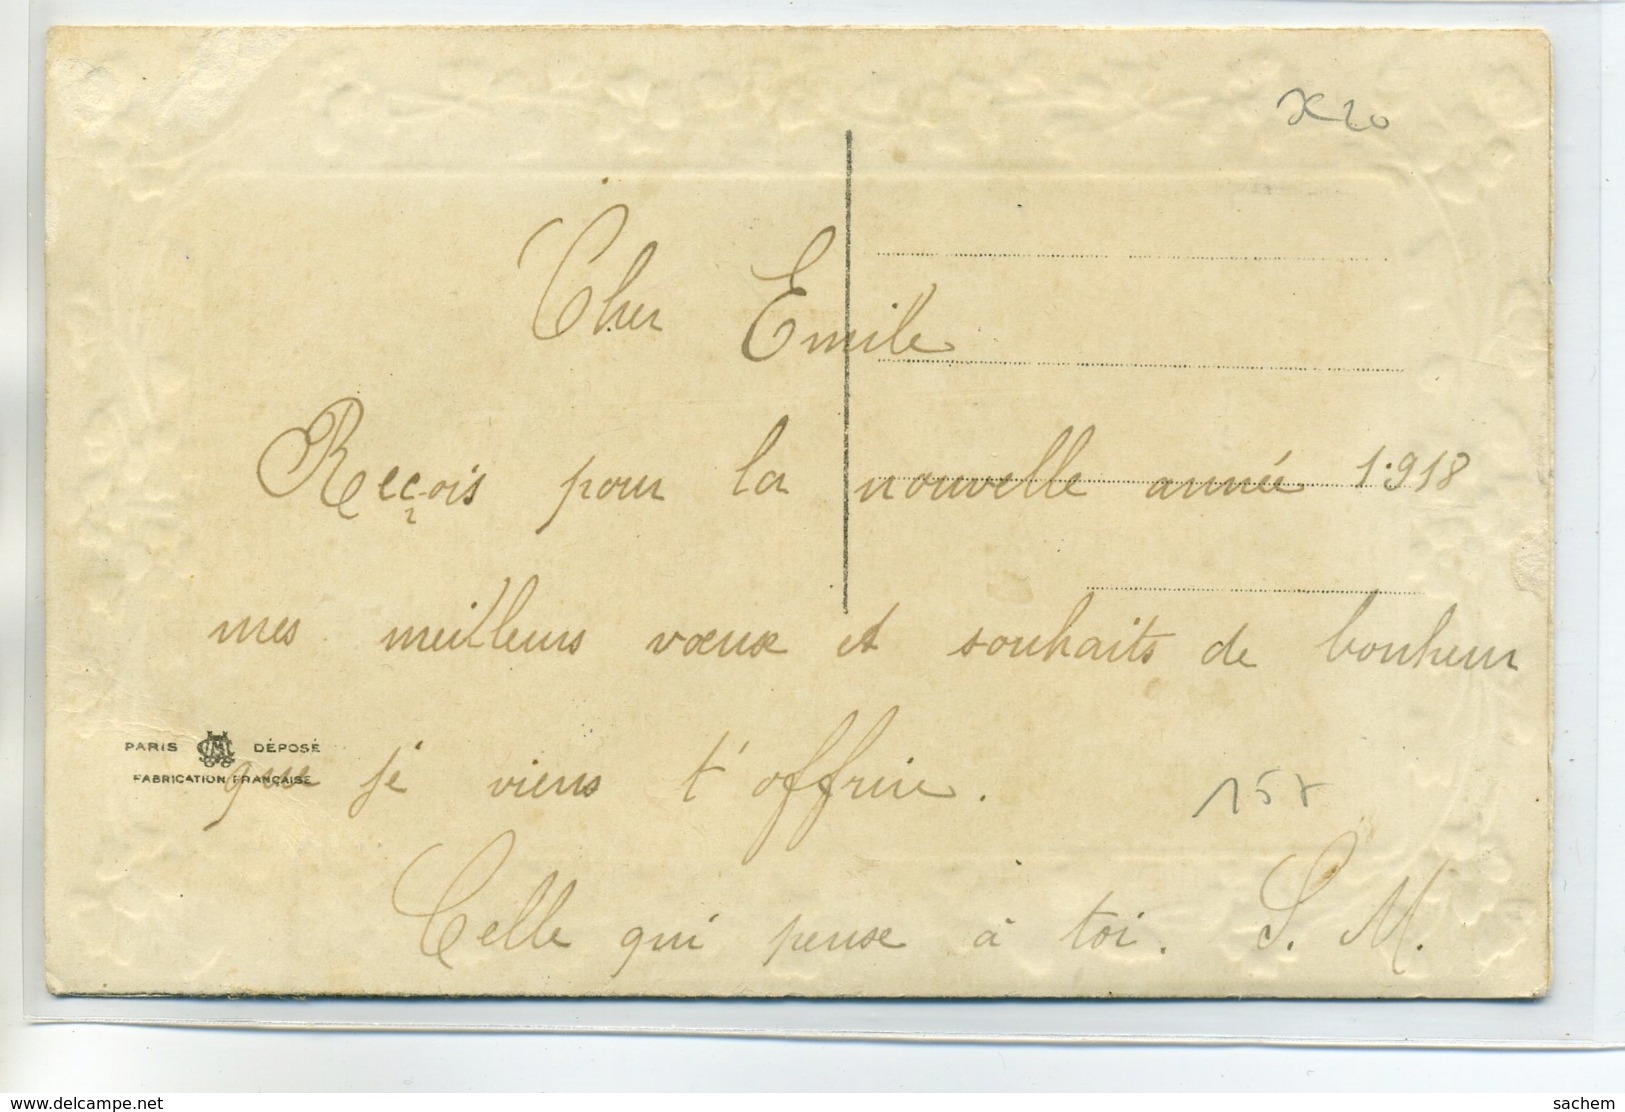 Cher Emile
Reçois pour la nouvelle année 1918
mes meilleurs vœux et souhaits de bonheur
PARIS DÉPOSÉ
FABRICATION FRANÇAISE
que je viens t'offrire.
157
Celle qui pense à toi. S. M.
www.delcampe.net
sachem